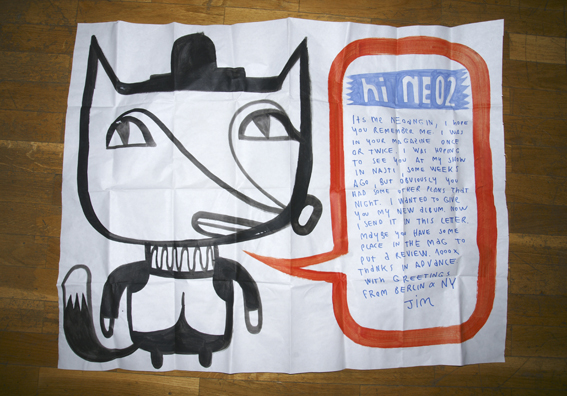 hi NEO2
ITS ME NEOANGIN, I HOPE
YOU REMEMBER ME I WAS
IN YOUR MAGAZINE ONCE
OR TWICE. I WAS HOPING
TO SEE YOU AT MY SHOW
IN NASTI, SOME WEEKS
AGO, BUT OBVIOUSLY YOU
HAD SOME OTHER PLANS THAT
NIGHT. I WANTED TO GIVE
YOU MY NEW ALBUM. NOW
I SEND IT IN THIS LETER.
MAYBE YOU HAVE SOME
PLACE IN THE MAG TO
PUT A REVIEW. 1000X
THANKS IN ADVANCE
WITH GREETINGS
FROM BERLIN & NY
JIM